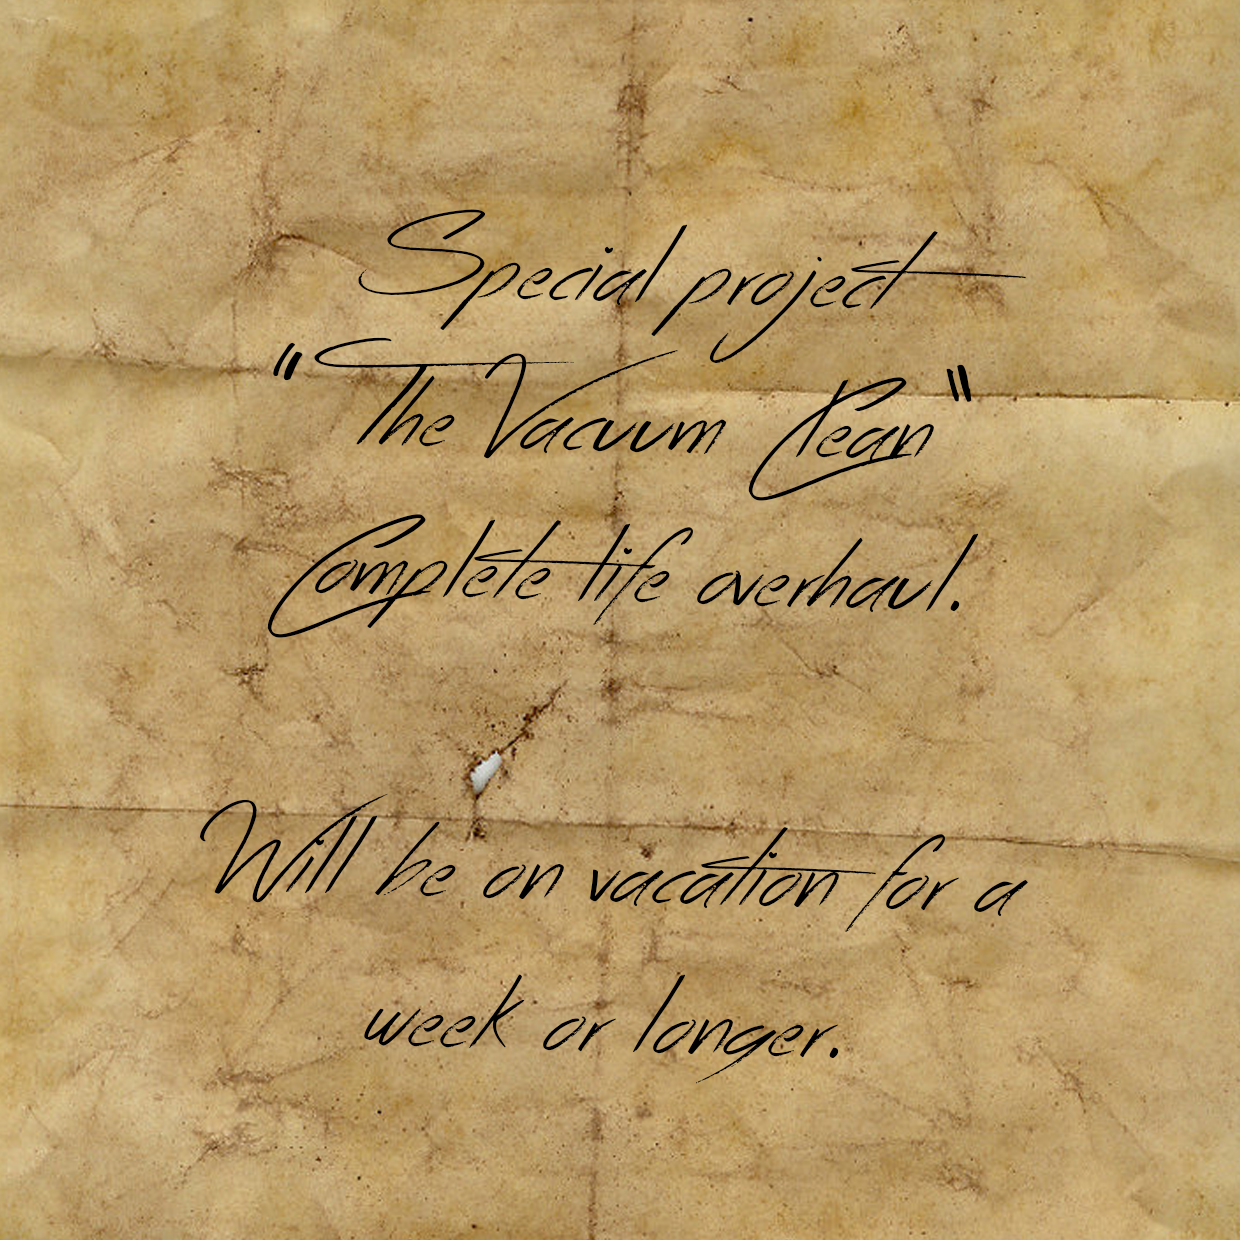 Special project
"The Vacuum Clean"
Complete life overhaul.
Will be on vacation for a
week or longer.